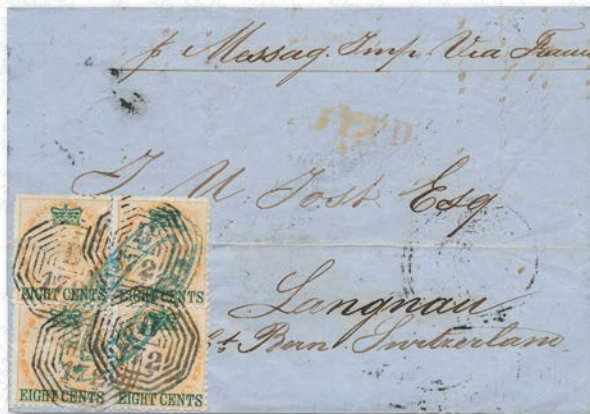 p Messag. Imp. Via France
PD
J U Jost Esq
Langnau
Ct Bern Switzerland.
B
172
B
172
EIGHT CENTS EIGHT CENTS
B
172
B
172
EIGHT CENTS EIGHT CENTS